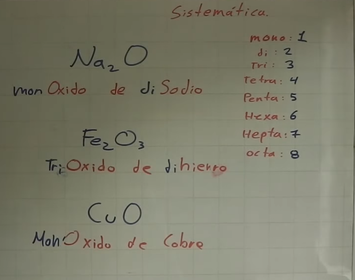 Sistemática.
mono: 1
di: 2
Tri: 3
Tetra: 4
Penta: 5
Hexa: 6
Hepta: 7
octa: 8
Na₂O
monOxido de diSodio
Fe₂O₃
TriOxido de dihierro
CuO
MonOxido de Cobre